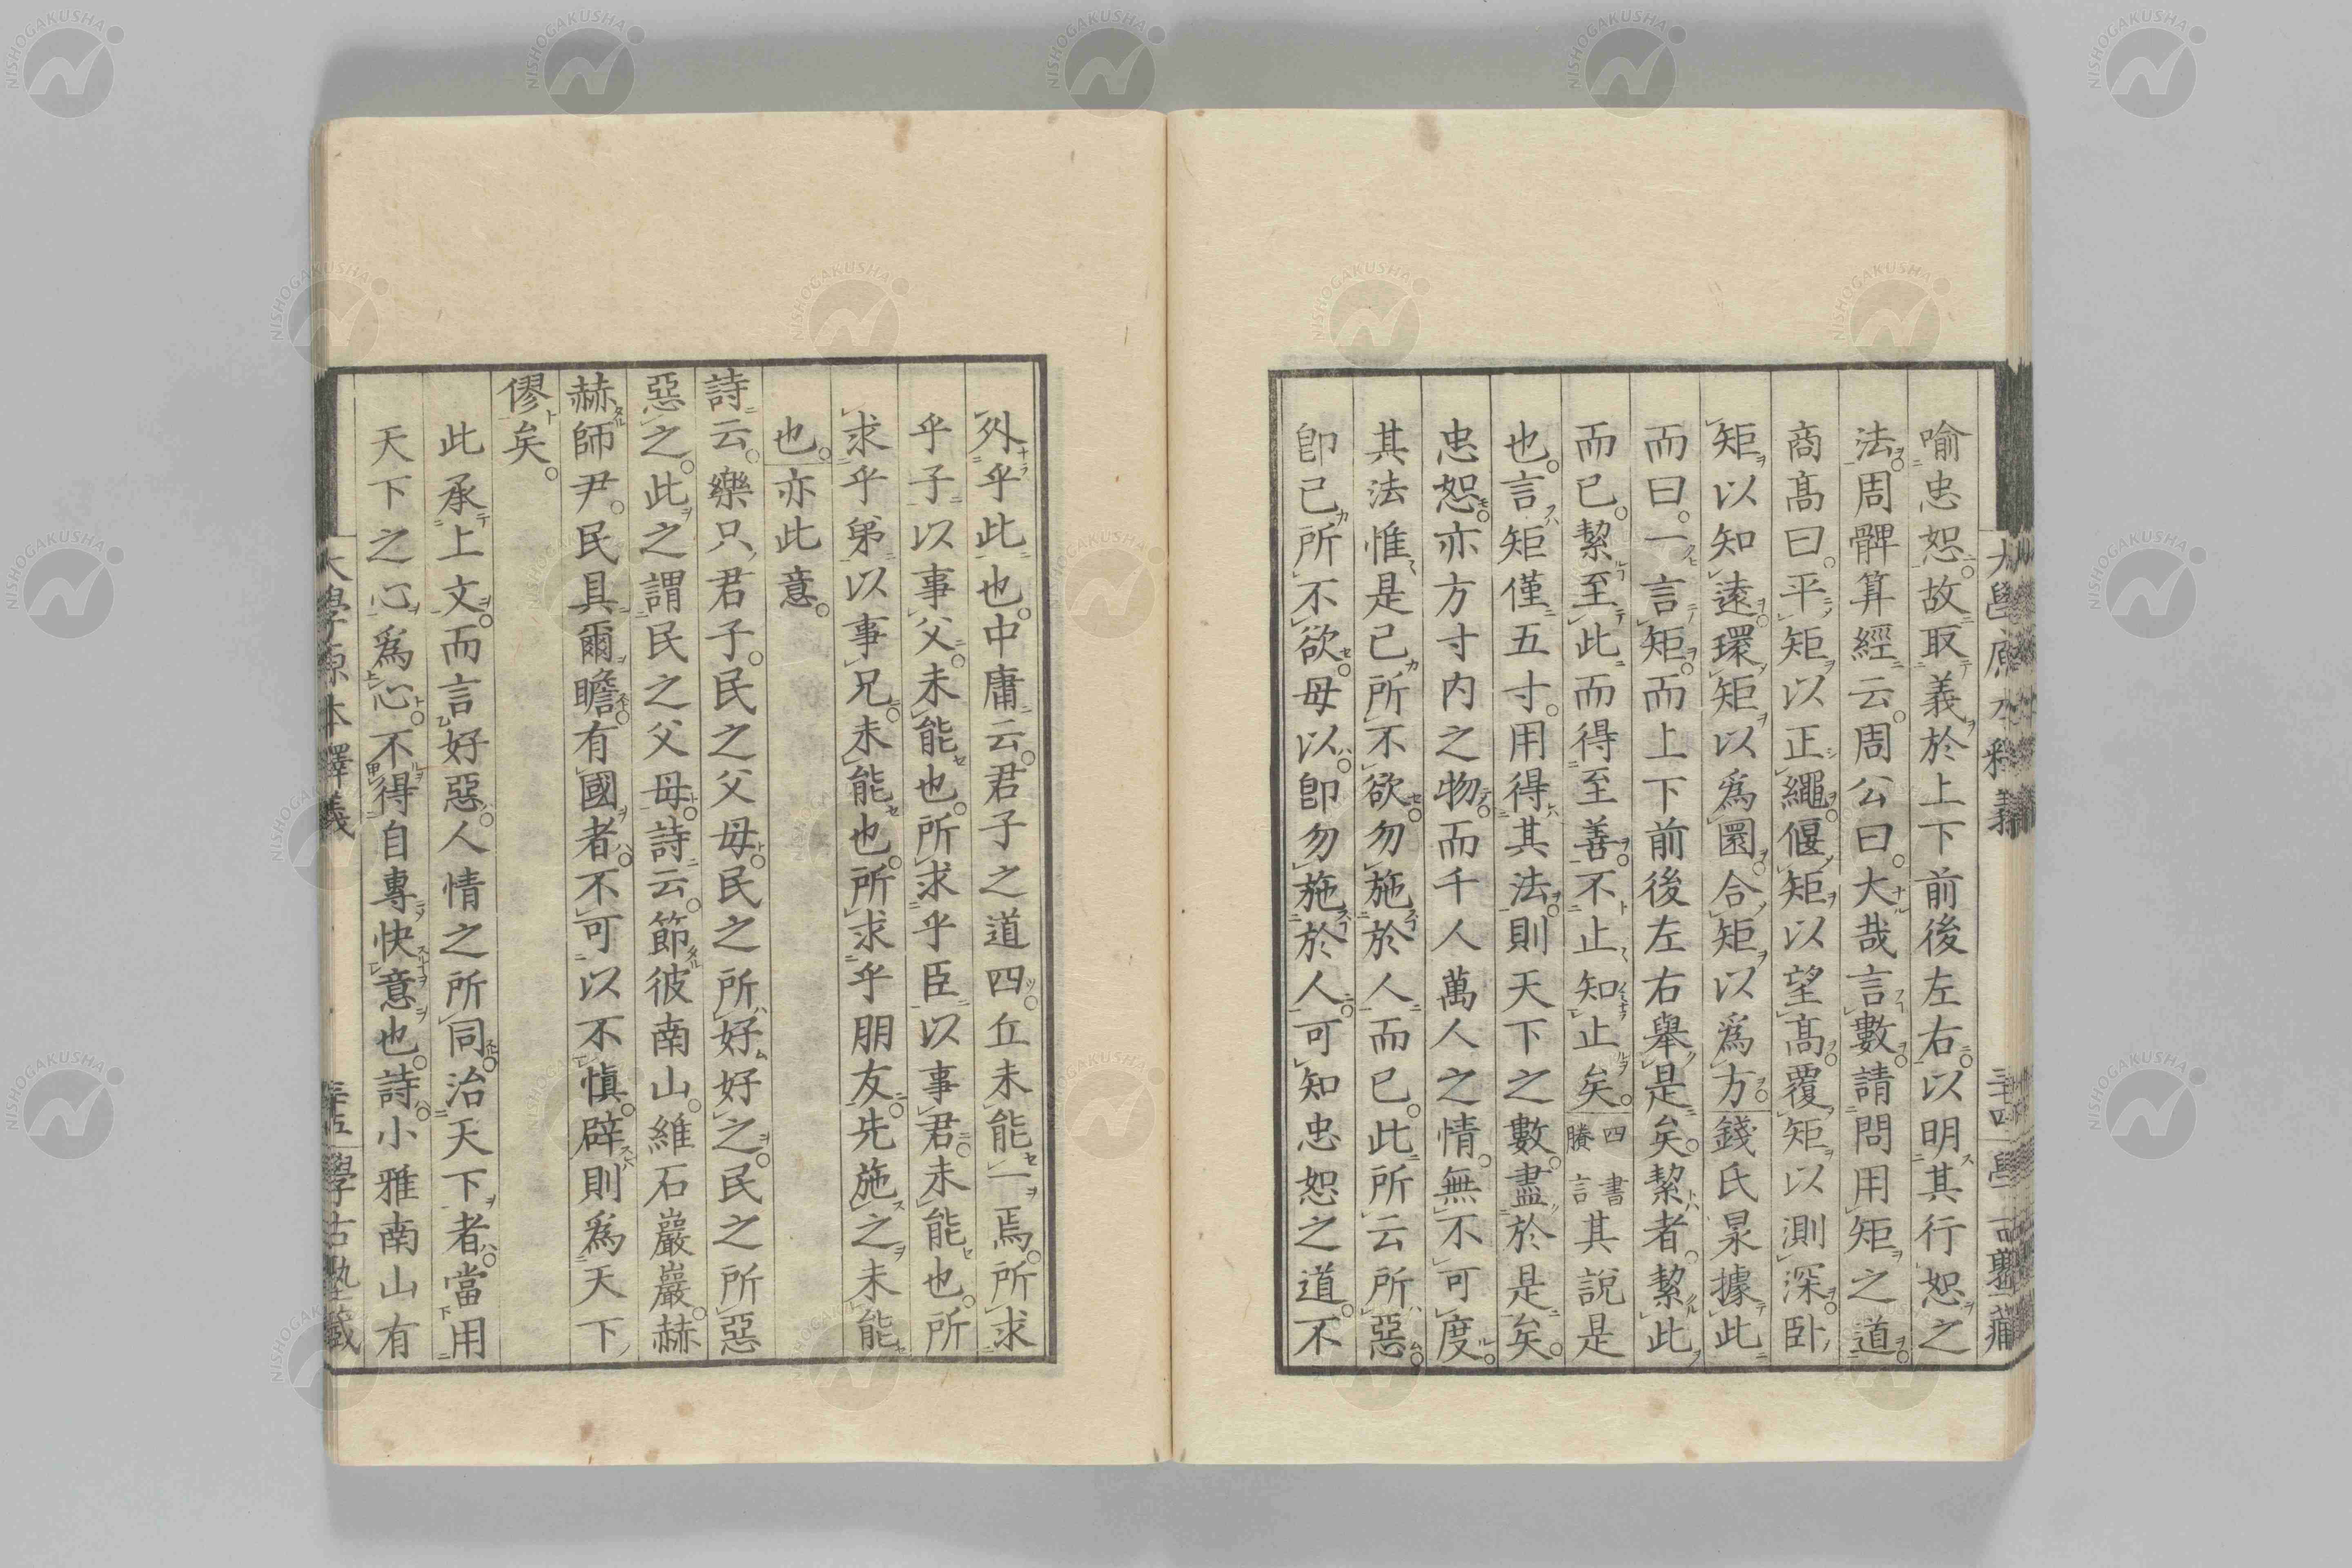 喻忠恕故取義於上下前後左右以明其行恕之
法周髀算經云周公曰大哉言數請問用矩之道
商髙曰平矩以正繩偃矩以望髙覆矩以測深臥
矩以知遠環矩以爲圜合矩以爲方錢氏杲據此
而曰一言矩而上下前後左右舉是矣絜者絜此
而已絜至此而得至善不止知止矣四書賸言其說是
也言矩僅五寸用得其法則天下之數盡於是矣
忠恕亦方寸内之物而千人萬人之情無不可度
其法惟是己所不欲勿施於人而已此所云所惡
卽己所不欲毋以卽勿施於人可知忠恕之道不
外乎此也中庸云君子之道四丘未能一焉所求
乎子以事父未能也所求乎臣以事君未能也所
求乎弟以事兄未能也所求乎朋友先施之未能
也亦此意
詩云樂只君子民之父母民之所好好之民之所惡
惡之此之謂民之父母詩云節彼南山維石巖巖赫
赫師尹民具爾瞻有國者不可以不愼辟則爲天下
僇矣
此承上文而言好惡人情之所同治天下者當用
天下之心爲心不得自專快意也詩小雅南山有
大學原本釋義 三十五 學古塾藏
NISHOGAKUSHA